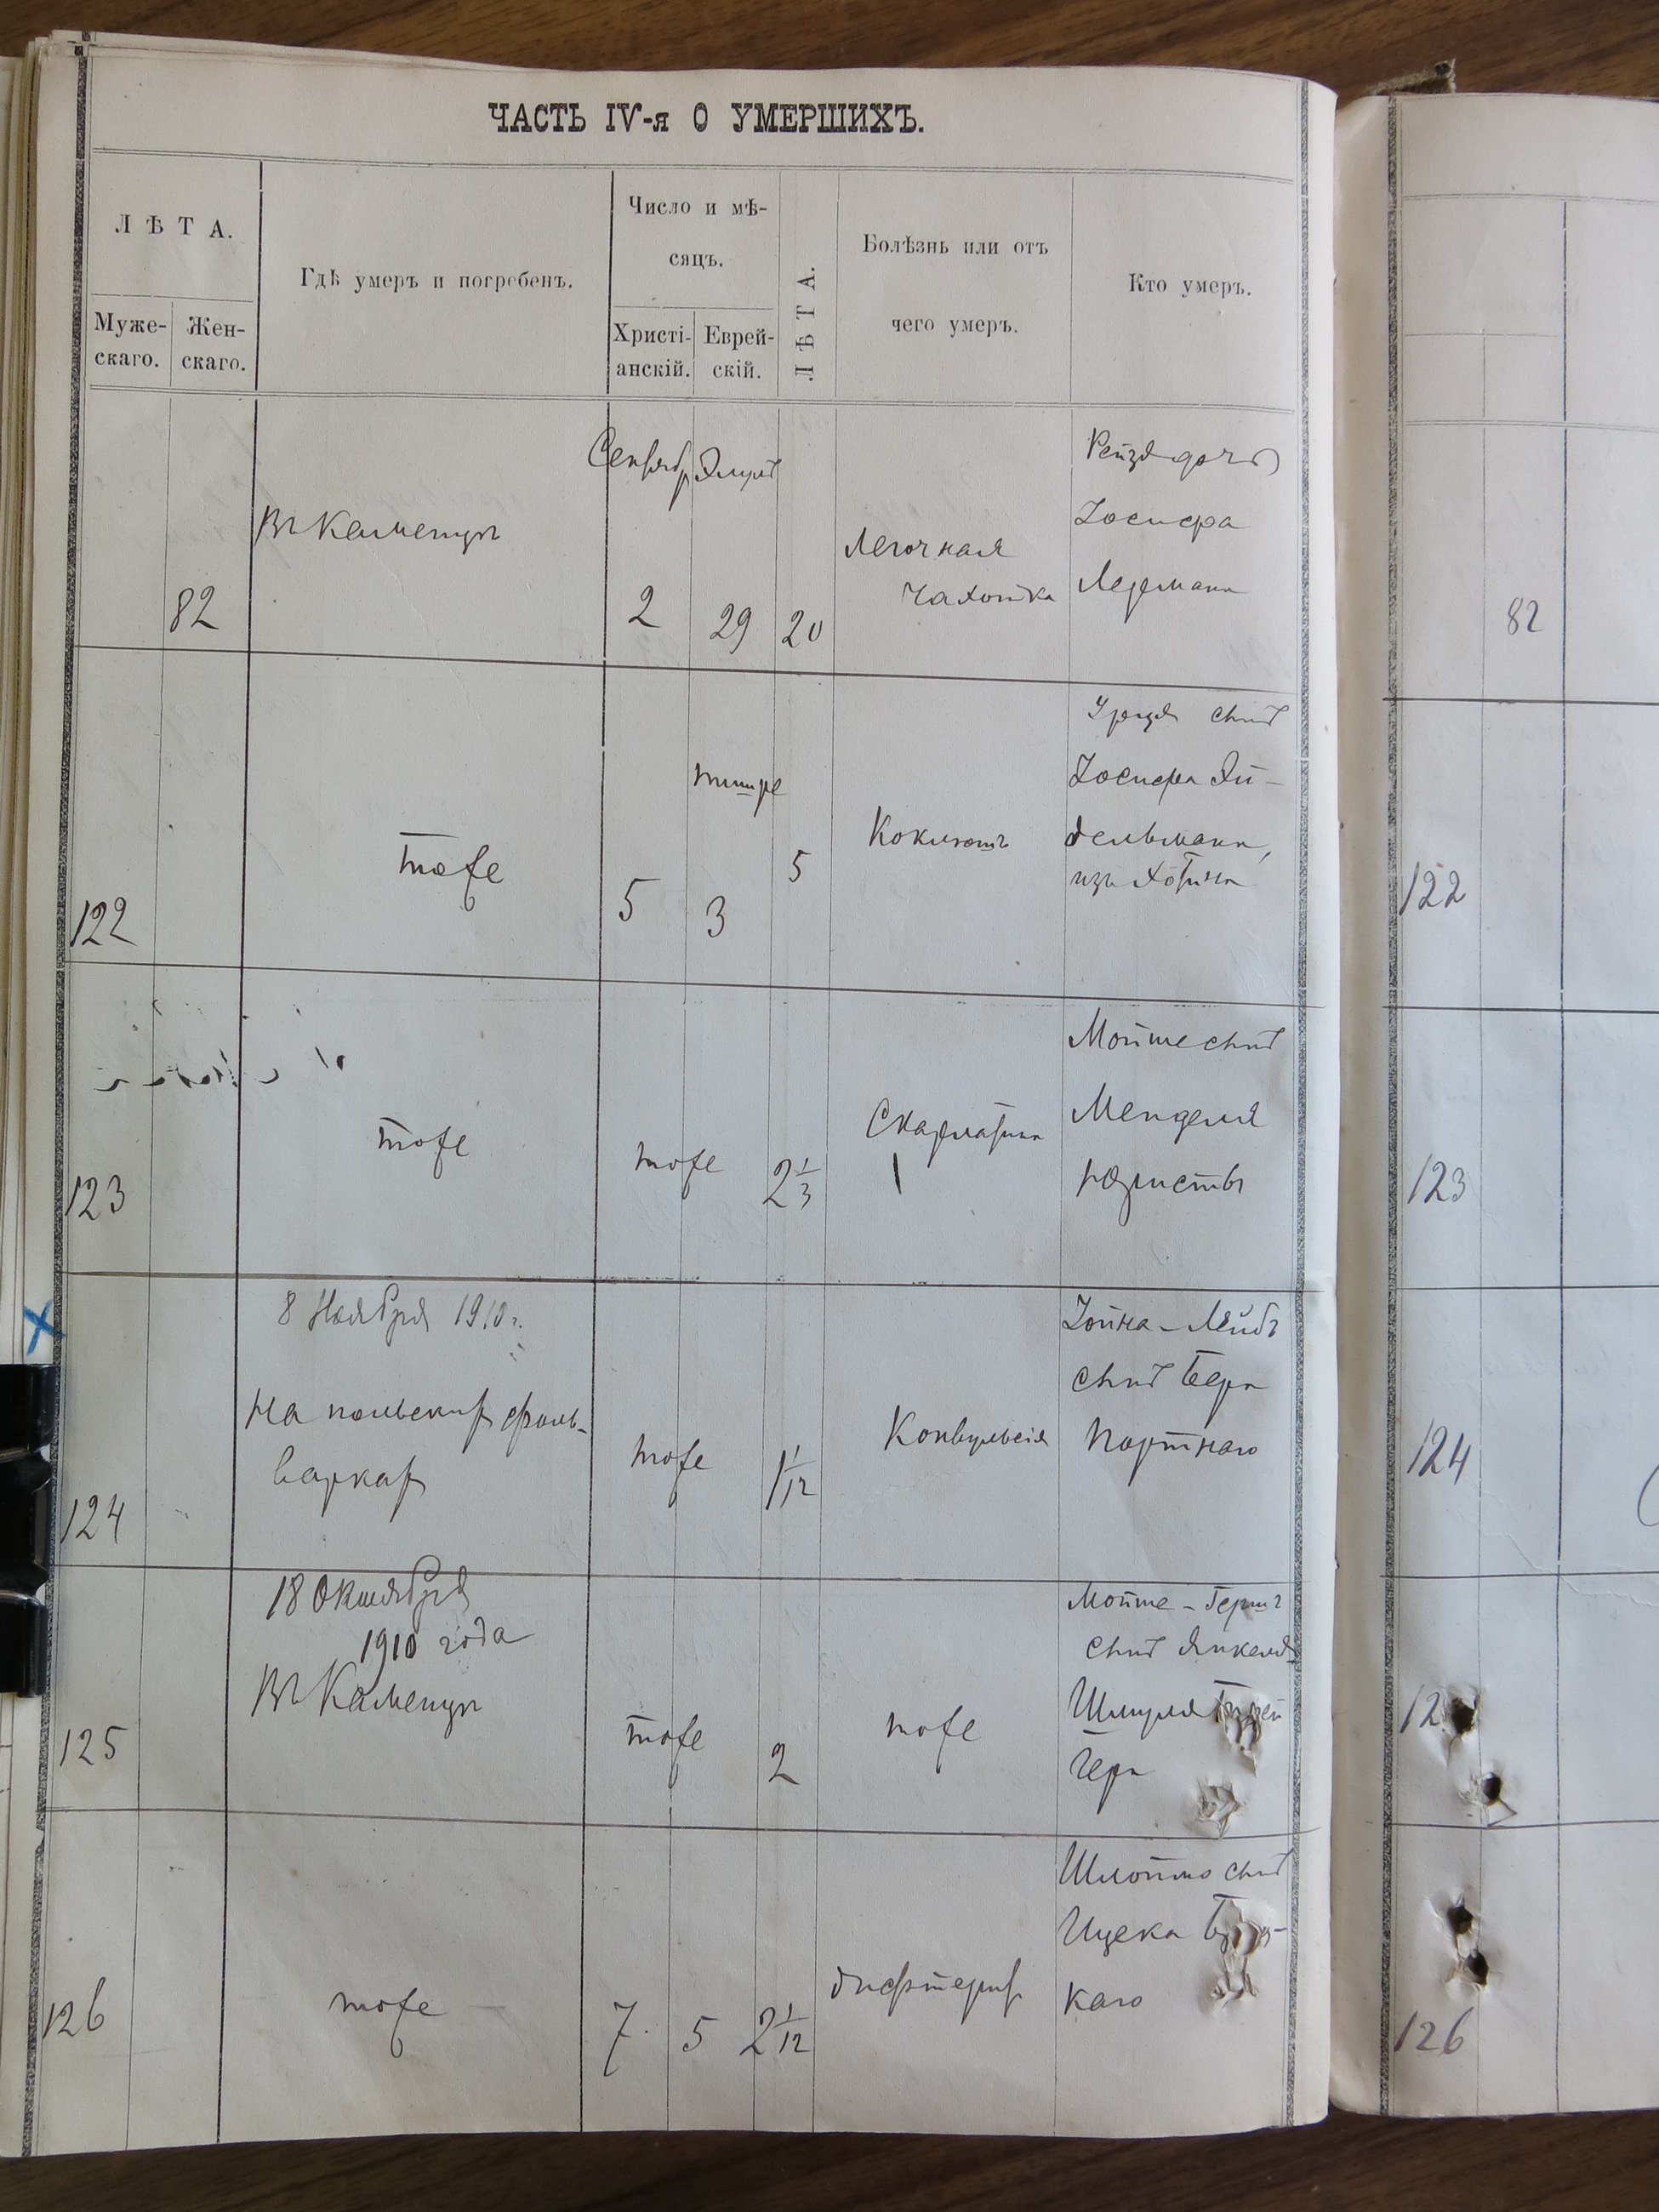 ЧАСТЬ IV-я О УМЕРШИХЪ.
ЛѢТА.
Муже-
скаго.
Жен-
скаго.
Гдѣ умеръ и погребенъ.
Число и мѣ-
сяцъ.
Христі-
анскій.
Еврей-
скій.
ЛѢТА.
Болѣзнь или отъ
чего умеръ.
Кто умеръ.
82
Въ Каменцѣ
2
29
20
Легочная
чахотка
Рейзя дочь
Іосифа
Лермана
82
122
тоже
5
тишре
3
5
Коклюшъ
сынъ
Іосифа Эй-
дельмана,
изъ Хотина
122
123
тоже
тоже
2 1/3
Скарлатина
Мойше сынъ
Менделя
123
8 Ноября 1910 г.
124
На польских фоль-
варках
тоже
1 1/12
Конвульсія
Іойна-Лейбъ
сынъ Бера
Портного
124
18 Октября
1910 года
125
Въ Каменцѣ
тоже
2
тоже
Мойше-Гершъ
сынъ Янкеля
Шмуля
126
тоже
7
5
2 1/12
дифтерит
Шлоймо сынъ
Ицека
каго
126